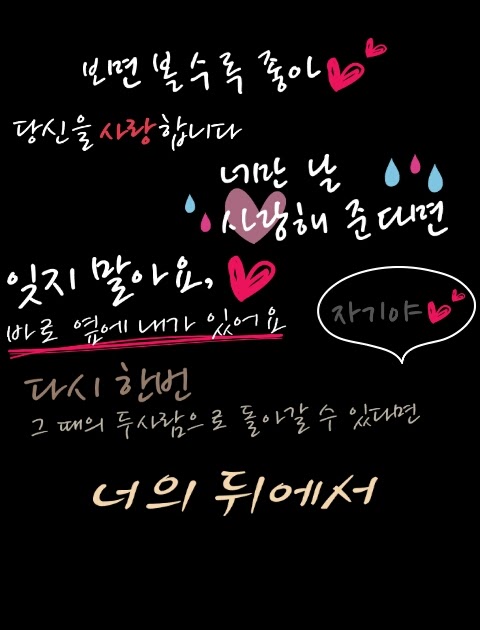 보면 볼수록 좋아
당신을 사랑합니다
네만 날
사랑해 준다면
잊지 말아요,
바로 옆에 내가 있어요
자기야
다시 한번
그 때의 두사람으로 돌아갈 수 있다면
너의 뒤에서